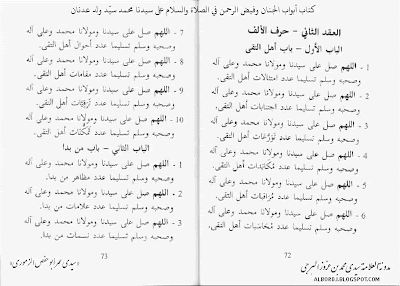 كتاب أبواب الجنان وفيض الرحمن في الصلاة والسلام على سيدنا محمد سيد ولد عدنان
العقد الثاني - حرف الألف
الباب الأول - باب أهل التقى
1 - اللهم صل على سيدنا ومولانا محمد وعلى آله
وصحبه وسلم تسليما عدد امتثالات أهل التقى.
2 - اللهم صل على سيدنا ومولانا محمد وعلى آله
وصحبه وسلم تسليما عدد اجتنابات أهل التقى.
3 - اللهم صل على سيدنا ومولانا محمد وعلى آله
وصحبه وسلم تسليما عدد تورعات أهل التقى.
4 - اللهم صل على سيدنا ومولانا محمد وعلى آله
وصحبه وسلم تسليما عدد مكابدات أهل التقى.
5 - اللهم صل على سيدنا ومولانا محمد وعلى آله
وصحبه وسلم تسليما عدد مراقبات أهل التقى.
6 - اللهم صل على سيدنا ومولانا محمد وعلى آله
وصحبه وسلم تسليما عدد محاسبات أهل التقى.
72
مدونة العلامة سيدي محمد بن عزوز البرجي
ALBORDJ.BLOGSPOT.COM
7 - اللهم صل على سيدنا ومولانا محمد وعلى آله
وصحبه وسلم تسليما عدد أحوال أهل التقى.
8 - اللهم صل على سيدنا ومولانا محمد وعلى آله
وصحبه وسلم تسليما عدد مقامات أهل التقى.
9 - اللهم صل على سيدنا ومولانا محمد وعلى آله
وصحبه وسلم تسليما عدد ترقيات أهل التقى.
10 - اللهم صل على سيدنا ومولانا محمد وعلى آله
وصحبه وسلم تسليما عدد تمكنات أهل التقى.
الباب الثاني - باب من بدا
1 - اللهم صل على سيدنا ومولانا محمد وعلى آله
وصحبه وسلم تسليما عدد مظاهر من بدا.
2 - اللهم صل على سيدنا ومولانا محمد وعلى آله
وصحبه وسلم تسليما عدد علامات من بدا.
3 - اللهم صل على سيدنا ومولانا محمد وعلى آله
وصحبه وسلم تسليما عدد النسمات من بدا.
73
«سيدي عمر أبو حفص الزموري»